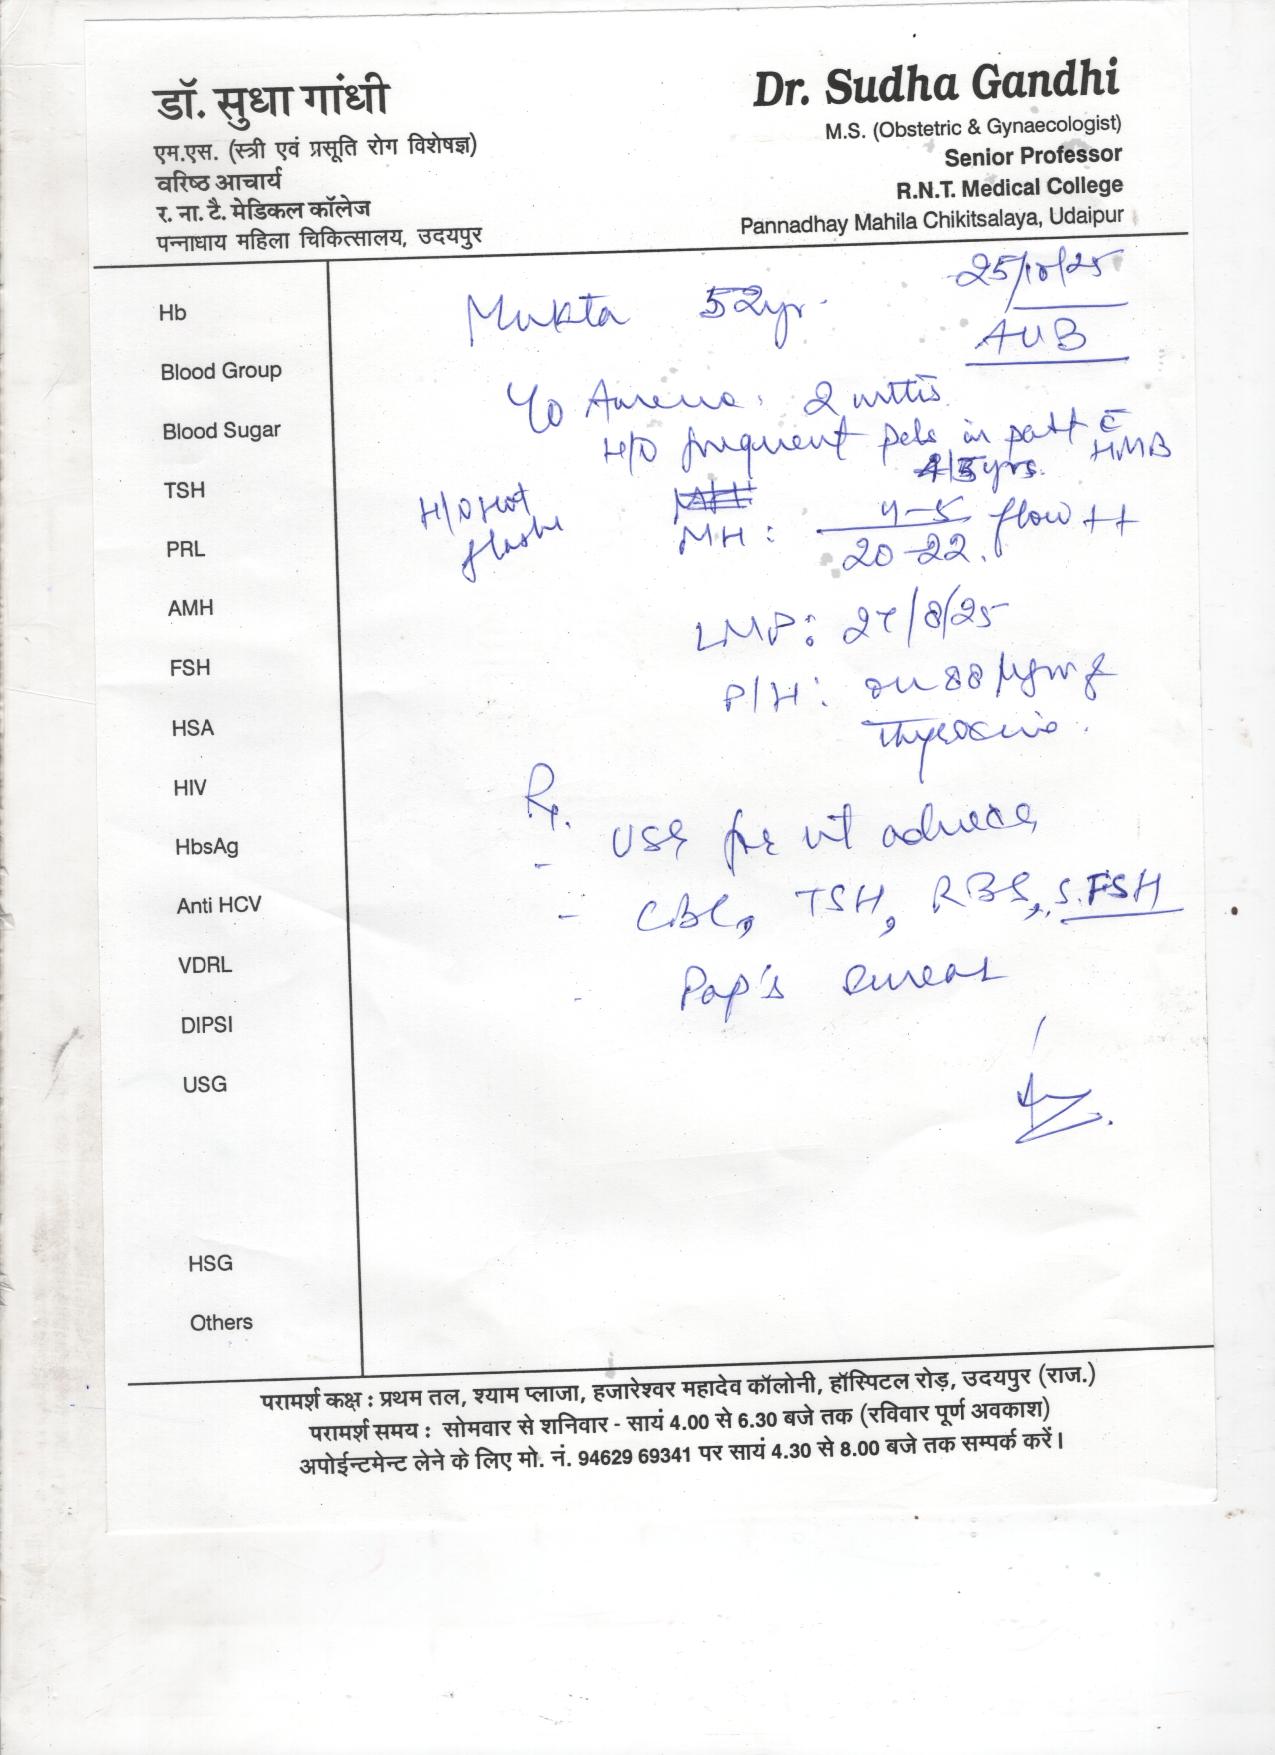 डॉ. सुधा गांधी
एम.एस. (स्त्री एवं प्रसूति रोग विशेषज्ञ)
वरिष्ठ आचार्य
र. ना. टै. मेडिकल कॉलेज
पन्नाधाय महिला चिकित्सालय, उदयपुर
Dr. Sudha Gandhi
M.S. (Obstetric & Gynaecologist)
Senior Professor
R.N.T. Medical College
Pannadhay Mahila Chikitsalaya, Udaipur
Hb
Blood Group
Blood Sugar
TSH
PRL
AMH
FSH
HSA
HIV
HbsAg
Anti HCV
VDRL
DIPSI
USG
HSG
Others
25/10/25
Mukta 52yr.
AUB
2 mths
H/O frequent in past c̄ HMB
yrs.
H/O Hot
MH: 4-5 / 20-22. flow ++
LMP: 27/8/25
P/H: on 88 µgm of
Thyroxine.
Rx.
- USG for ut adnexa
- CBC, TSH, RBS, S. FSH
- Pap's smear
परामर्श कक्ष : प्रथम तल, श्याम प्लाजा, हजारेश्वर महादेव कॉलोनी, हॉस्पिटल रोड़, उदयपुर (राज.)
परामर्श समय : सोमवार से शनिवार - सायं 4.00 से 6.30 बजे तक (रविवार पूर्ण अवकाश)
अपोईन्टमेन्ट लेने के लिए मो. नं. 94629 69341 पर सायं 4.30 से 8.00 बजे तक सम्पर्क करें।